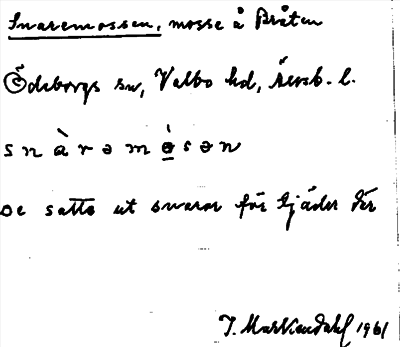 Snaremossen, mosse å Bråten
Ödeborgs sn, Valbo hd, Älvsb. l.
snàrəmós̱ən
De satte ut snaror för tjäder där
J. Markendahl 1961